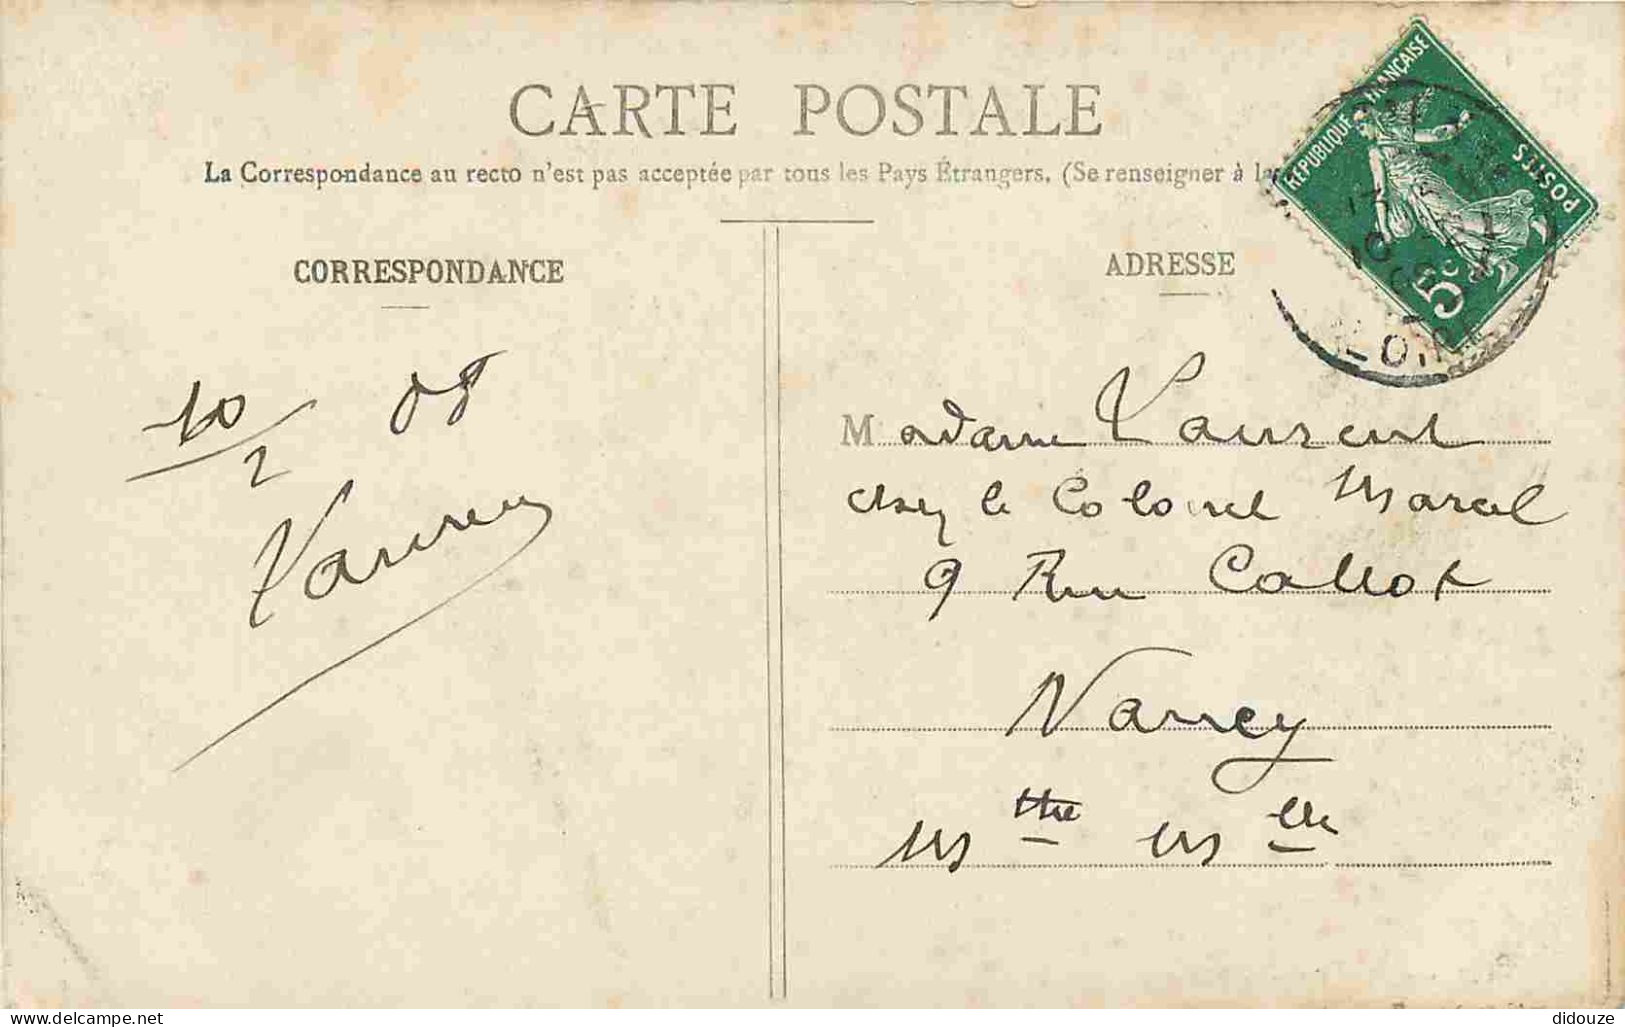 CARTE POSTALE
La Correspondance au recto n'est pas acceptée par tous les Pays Étrangers. (Se renseigner à la
CORRESPONDANCE
ADRESSE
RÉPUBLIQUE FRANÇAISE
POSTES
5c
10/2 08
Laurent
Madame Laurent
chez le Colonel Marcel
9 Rue Callot
Nancy
Mthe Mselle
delcampe.net
didouze